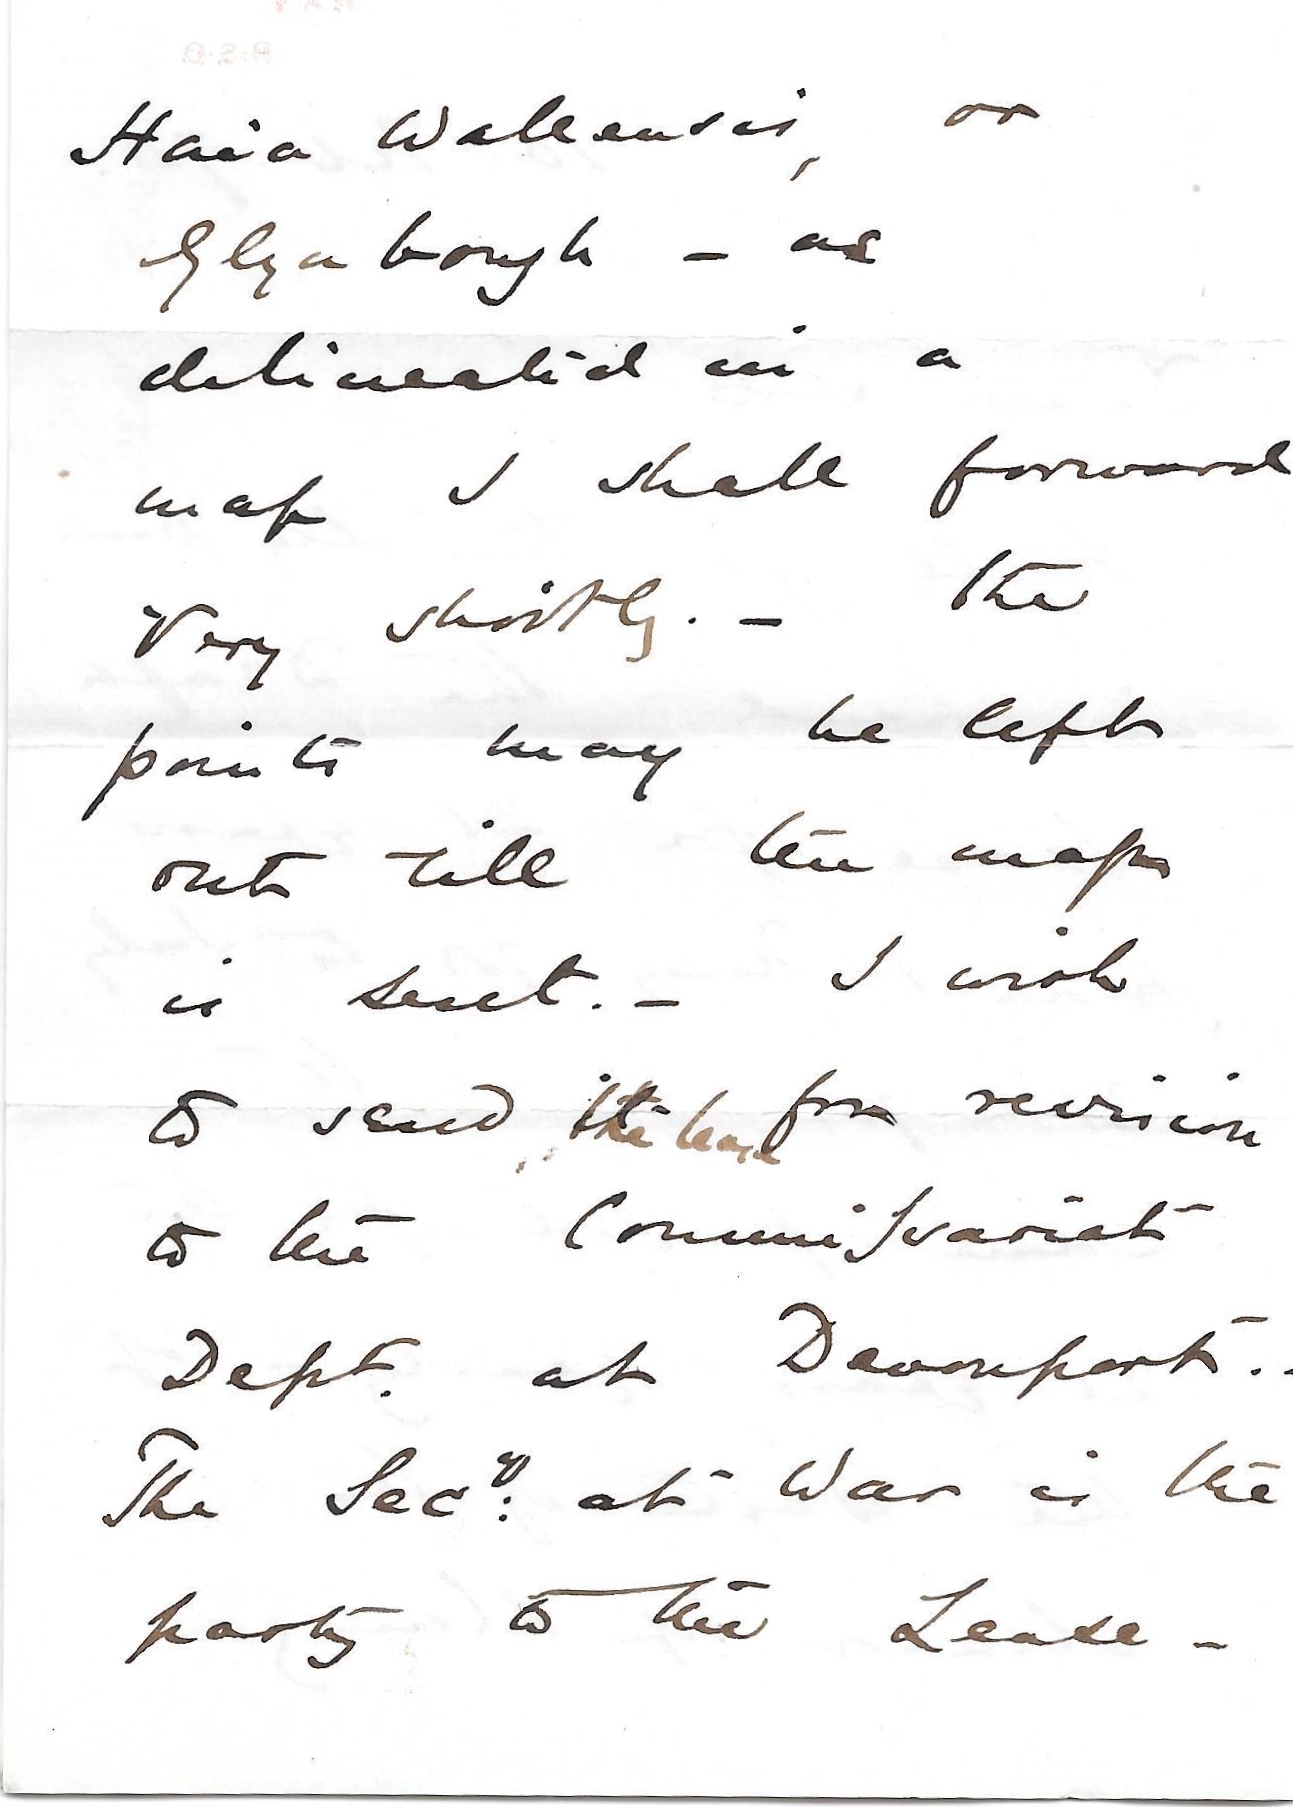 Haia Wallensis, or
Glynborough - as
delineated in a
map I shall forward
very shortly. - The
points may be left
out till the map
is sent. - I wish
to send it the lease for revision
to the Commissariat
Dept. at Devonport. -
The Secy: at War is the
party to the Lease -